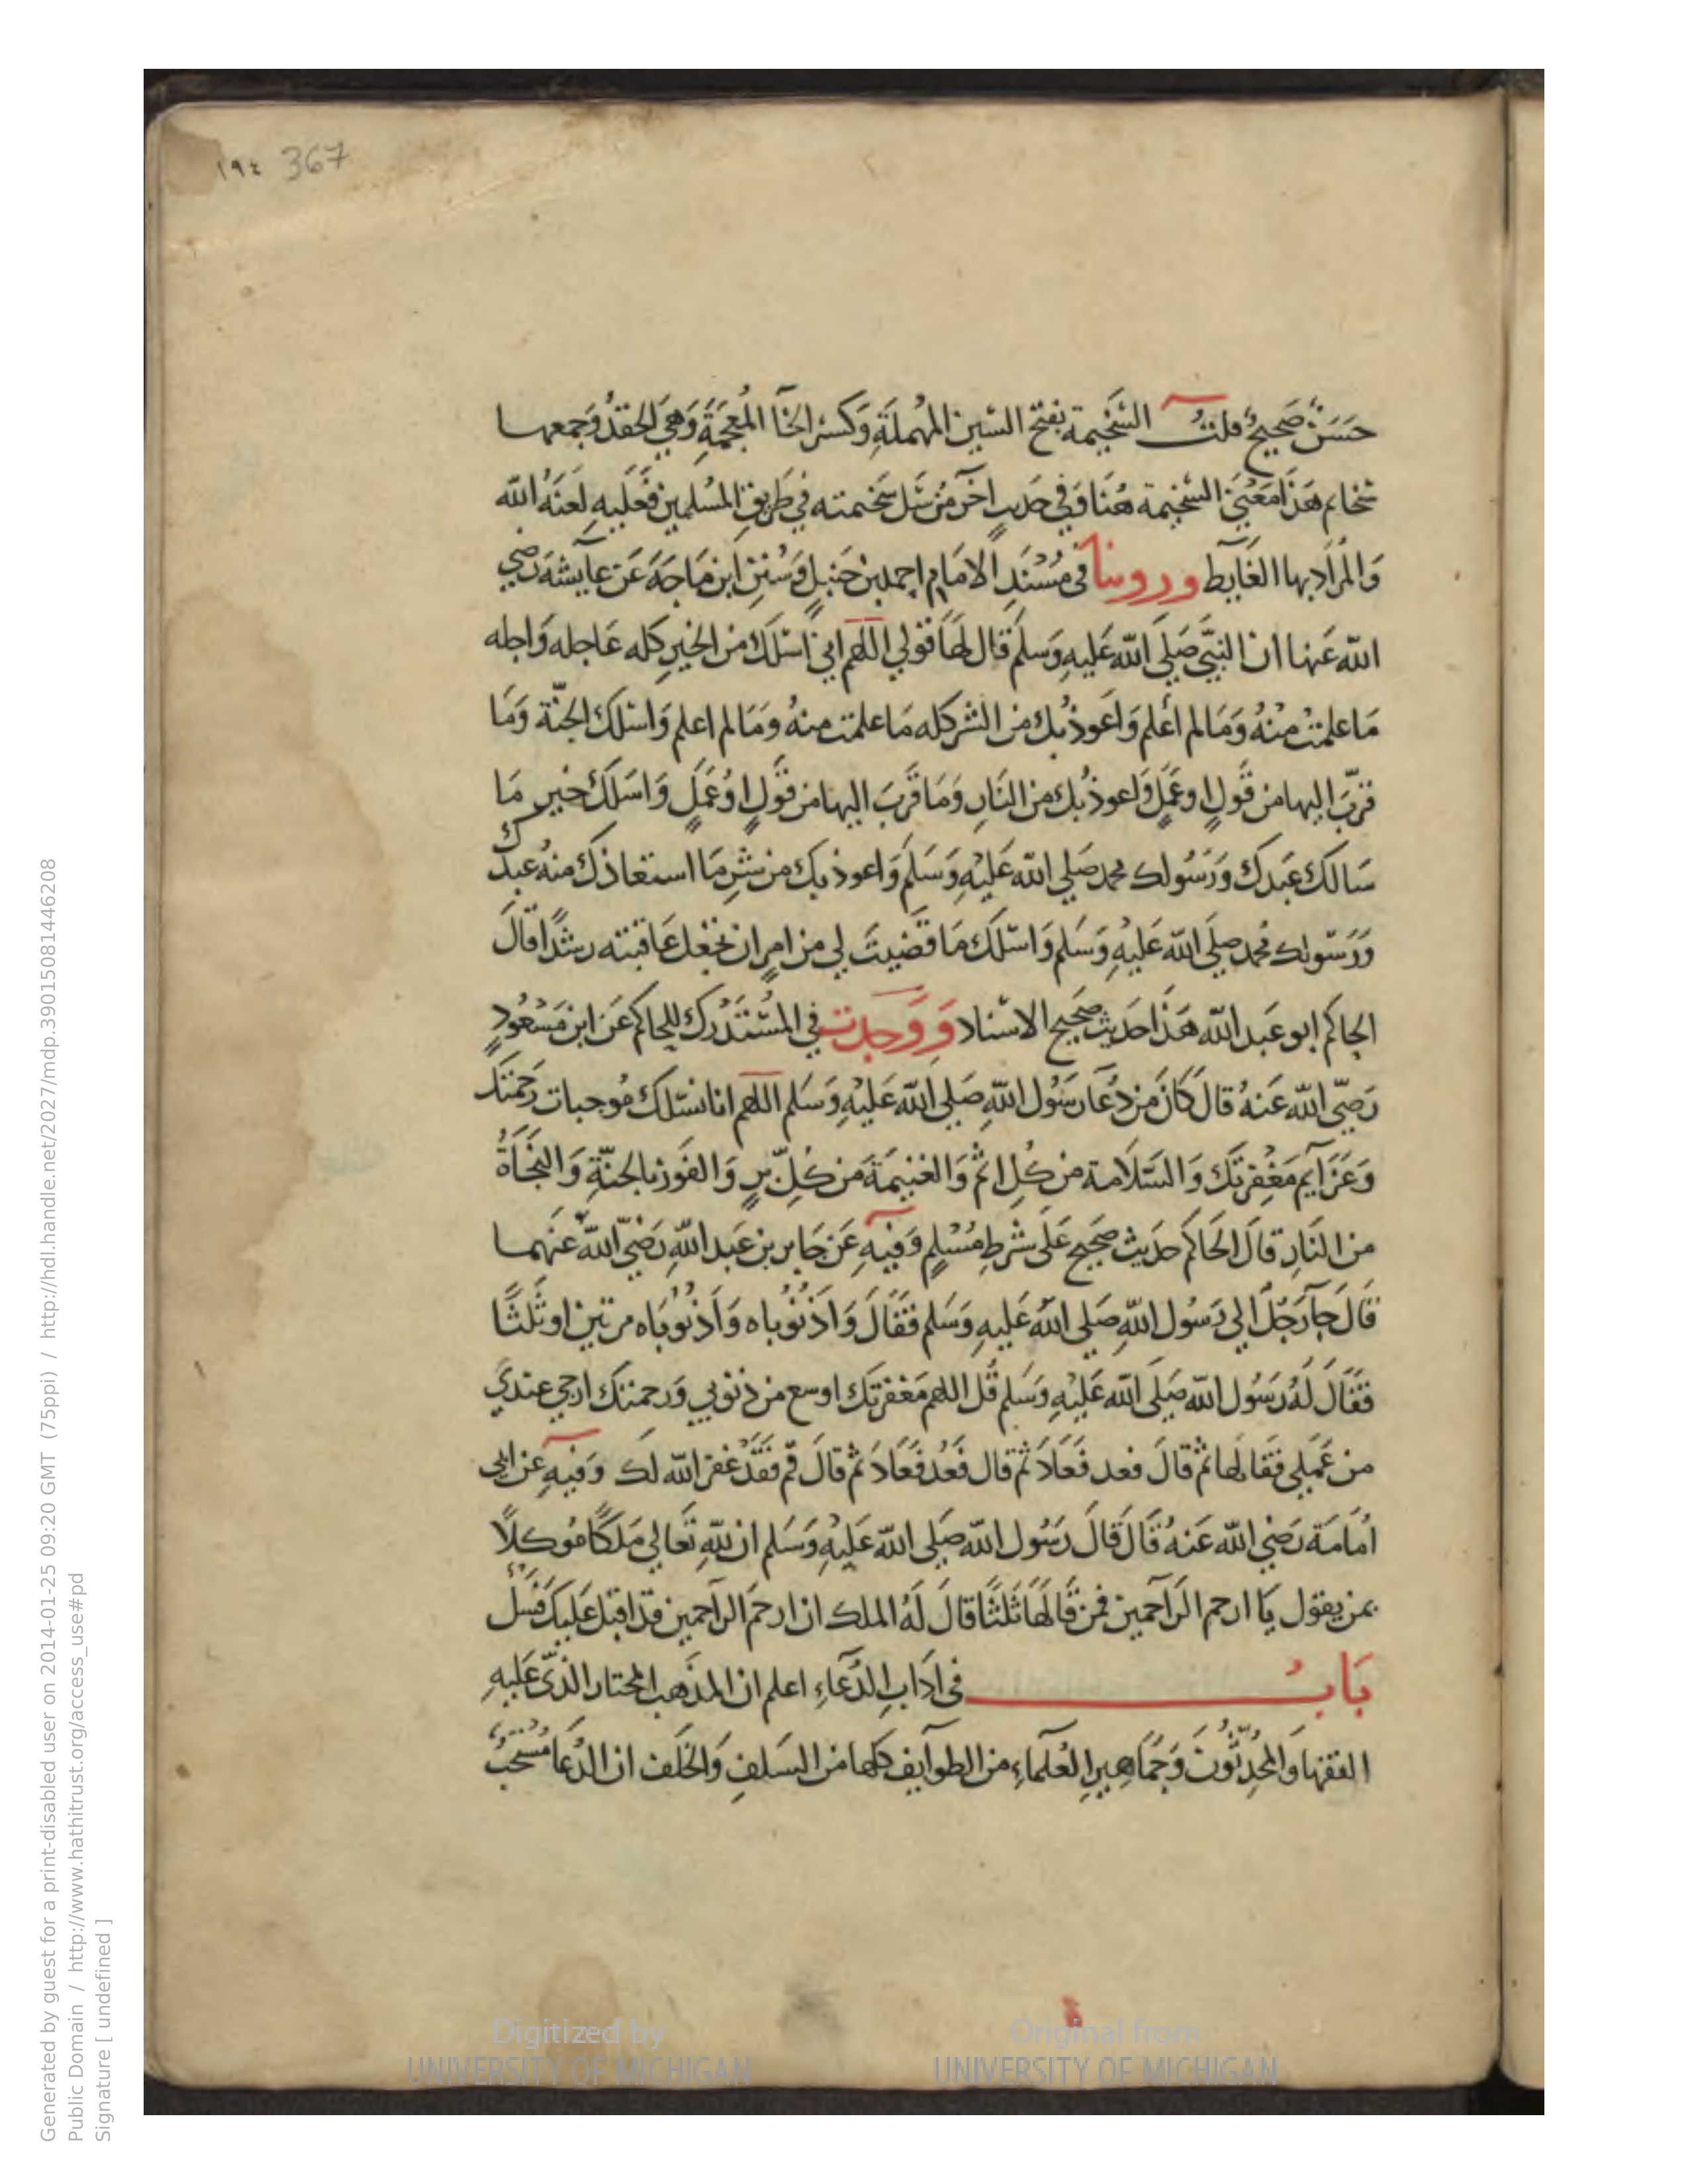 ١٩٤ 367
حَسَنٌ صَحِيحٌ قلتُ السَّخيمة بفتح السّين المُهملَةِ وَكسْر الخآ المُعجَمَةِ وَهيَ الحِقدُ وَجمعها
سخايم هَذا مَعْنَى السَّخيمة هُنَا وَفي حَديثٍ اخرَ مَنْ سَلّ سَخيمته في طَريقِ المُسْلمينَ فَعَليهِ لَعنَةُ الله
وَالمرَادُ بها الغَايِط وروينا في مُسْنَدِ الامَام احمد بن حَنبلٍ وَسُنَنِ ابن مَاجَةَ عَن عآيشة رَضي
الله عَنها ان النبيَّ صَلَى الله عَليهِ وَسلم قال لهَا قولي اللهم اني اَسْئلكَ من الخير كله عَاجله وَاجله
مَا علمتُ منْهُ وَمَا لم أعلم وَاَعوذ بك من الشر كله مَا علمت منهُ وَمَا لم اعلم وَاسئلك الجنّة وَمَا
قرّبَ اليها من قَولٍ اوعَمَلٍ وَاعوذ بك من النَارِ وَمَا قَرّبَ اليها من قَولٍ اوْ عَمَلٍ وَاسَلكَ خير مَا
سَالكَ عَبدكَ وَرَسُولك محمد صَلي الله عَليْهِ وَسَلم وَاعوذ بك من شرِ مَا استعاذكَ منهُ عبدك
وَرَسُولك محمد صَلَى الله عَليْهِ وَسَلم وَاسْئلك مَا قَضيتَ لي من امرٍ ان تجعل عَاقبته رشدًا قالَ
الحاكم ابو عَبد الله هَذَا حَديث صَحيح الاسْناد وَوَجدت في المُسْتَدْرك للحاكم عَن ابن مَسْعُودٍ
رَضيَ الله عَنهُ قالَ كانَ من دُعَا رَسُول اللهِ صَلي الله عَليْهِ وَسَلم اللهم انا نسْئلكَ مُوجبات رَحمتك
وَعَزآيم مَغْفرتكَ وَالسَلامة من كُلِ اثم وَالغنيمَةَ من كُلِّ برٍ وَالفَوز بالجنّةِ وَالنجَاةَ
من النَارِ قالَ الحَاكم حَديث صَحيح عَلَى شَرطِ مُسْلمٍ وَفيهِ عَن جَابر بن عَبد اللهِ رَضيَ الله عَنهمـا
قالَ جآ رَجُل الي رَسُول اللهِ صَلي اللهُ عَليهِ وَسَلم فقَالَ وَاذنُوباه وَاذنُوبَاه مرتين اوثَلثًا
فقَالَ لهُ رَسُول الله صَلَى الله عَليْهِ وَسَلم قُل اللهم مَغفرتك اوسع من ذنوبي وَرحمتك ارجي عندي
من عَمَلي فقالهَا ثم قالَ فعد فَعَادَ ثم قال فَعُد فَعَادَ ثم قالَ قم فقَدْ غفرَ الله لك وَفيهِ عن ابي
اُمَامَة رَضي الله عَنهُ قَالَ قالَ رَسُول الله صَلي الله عَليْهِ وَسَلم ان للهِ تَعَالي مَلكًا مُوكلًا
بمن يقول يَا ارحم الرَاحمين فمن قَالهَا ثَلثًا قالَ لَهُ الملك ان ارحَمَ الرَاحمين قد اقبَلَ عَليكَ فَسَلْ
بَابُ في ادَابِ الدُعَاءِ اعلم ان المذهب المختار الذي عَليهِ
الفقها وَالمُحدثُونَ وَجَمَاهير العُلَمَاءِ من الطوآيف كلها من السَلفِ وَالخَلف ان الدُعَا مُسْتحَبٌ
Generated by guest for a print-disabled user on 2014-01-25 09:20 GMT (75ppi) / http://hdl.handle.net/2027/mdp.39015081446208
Public Domain / http://www.hathitrust.org/access_use#pd
Signature [ undefined ]
Digitized by
UNIVERSITY OF MICHIGAN
Original from
UNIVERSITY OF MICHIGAN